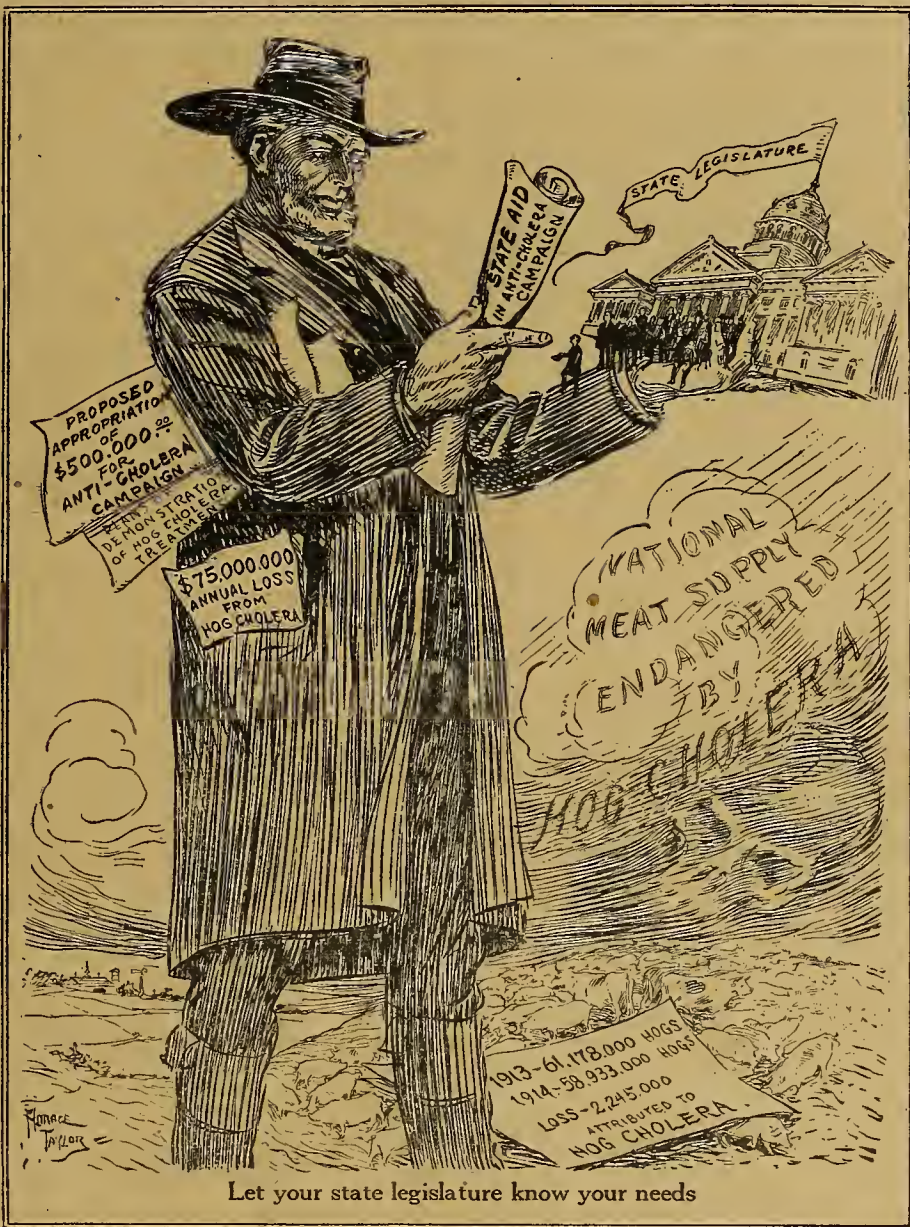 STATE LEGISLATURE
STATE AID
IN ANTI-CHOLERA
CAMPAIGN
PROPOSED
APPROPRIATION
OF
$500.000.00
FOR
ANTI-CHOLERA
CAMPAIGN
DEMONSTRATIO
OF HOG CHOLERA
TREATMEN
$75,000.000
ANNUAL LOSS
FROM
HOG CHOLERA
NATIONAL
MEAT SUPPLY
ENDANGERED
BY
HOG CHOLERA
1913-61,178.000 HOGS
1914-58,933.000 HOGS
LOSS-2,245,000
ATTRIBUTED TO
HOG CHOLERA
HORACE
TAYLOR
Let your state legislature know your needs